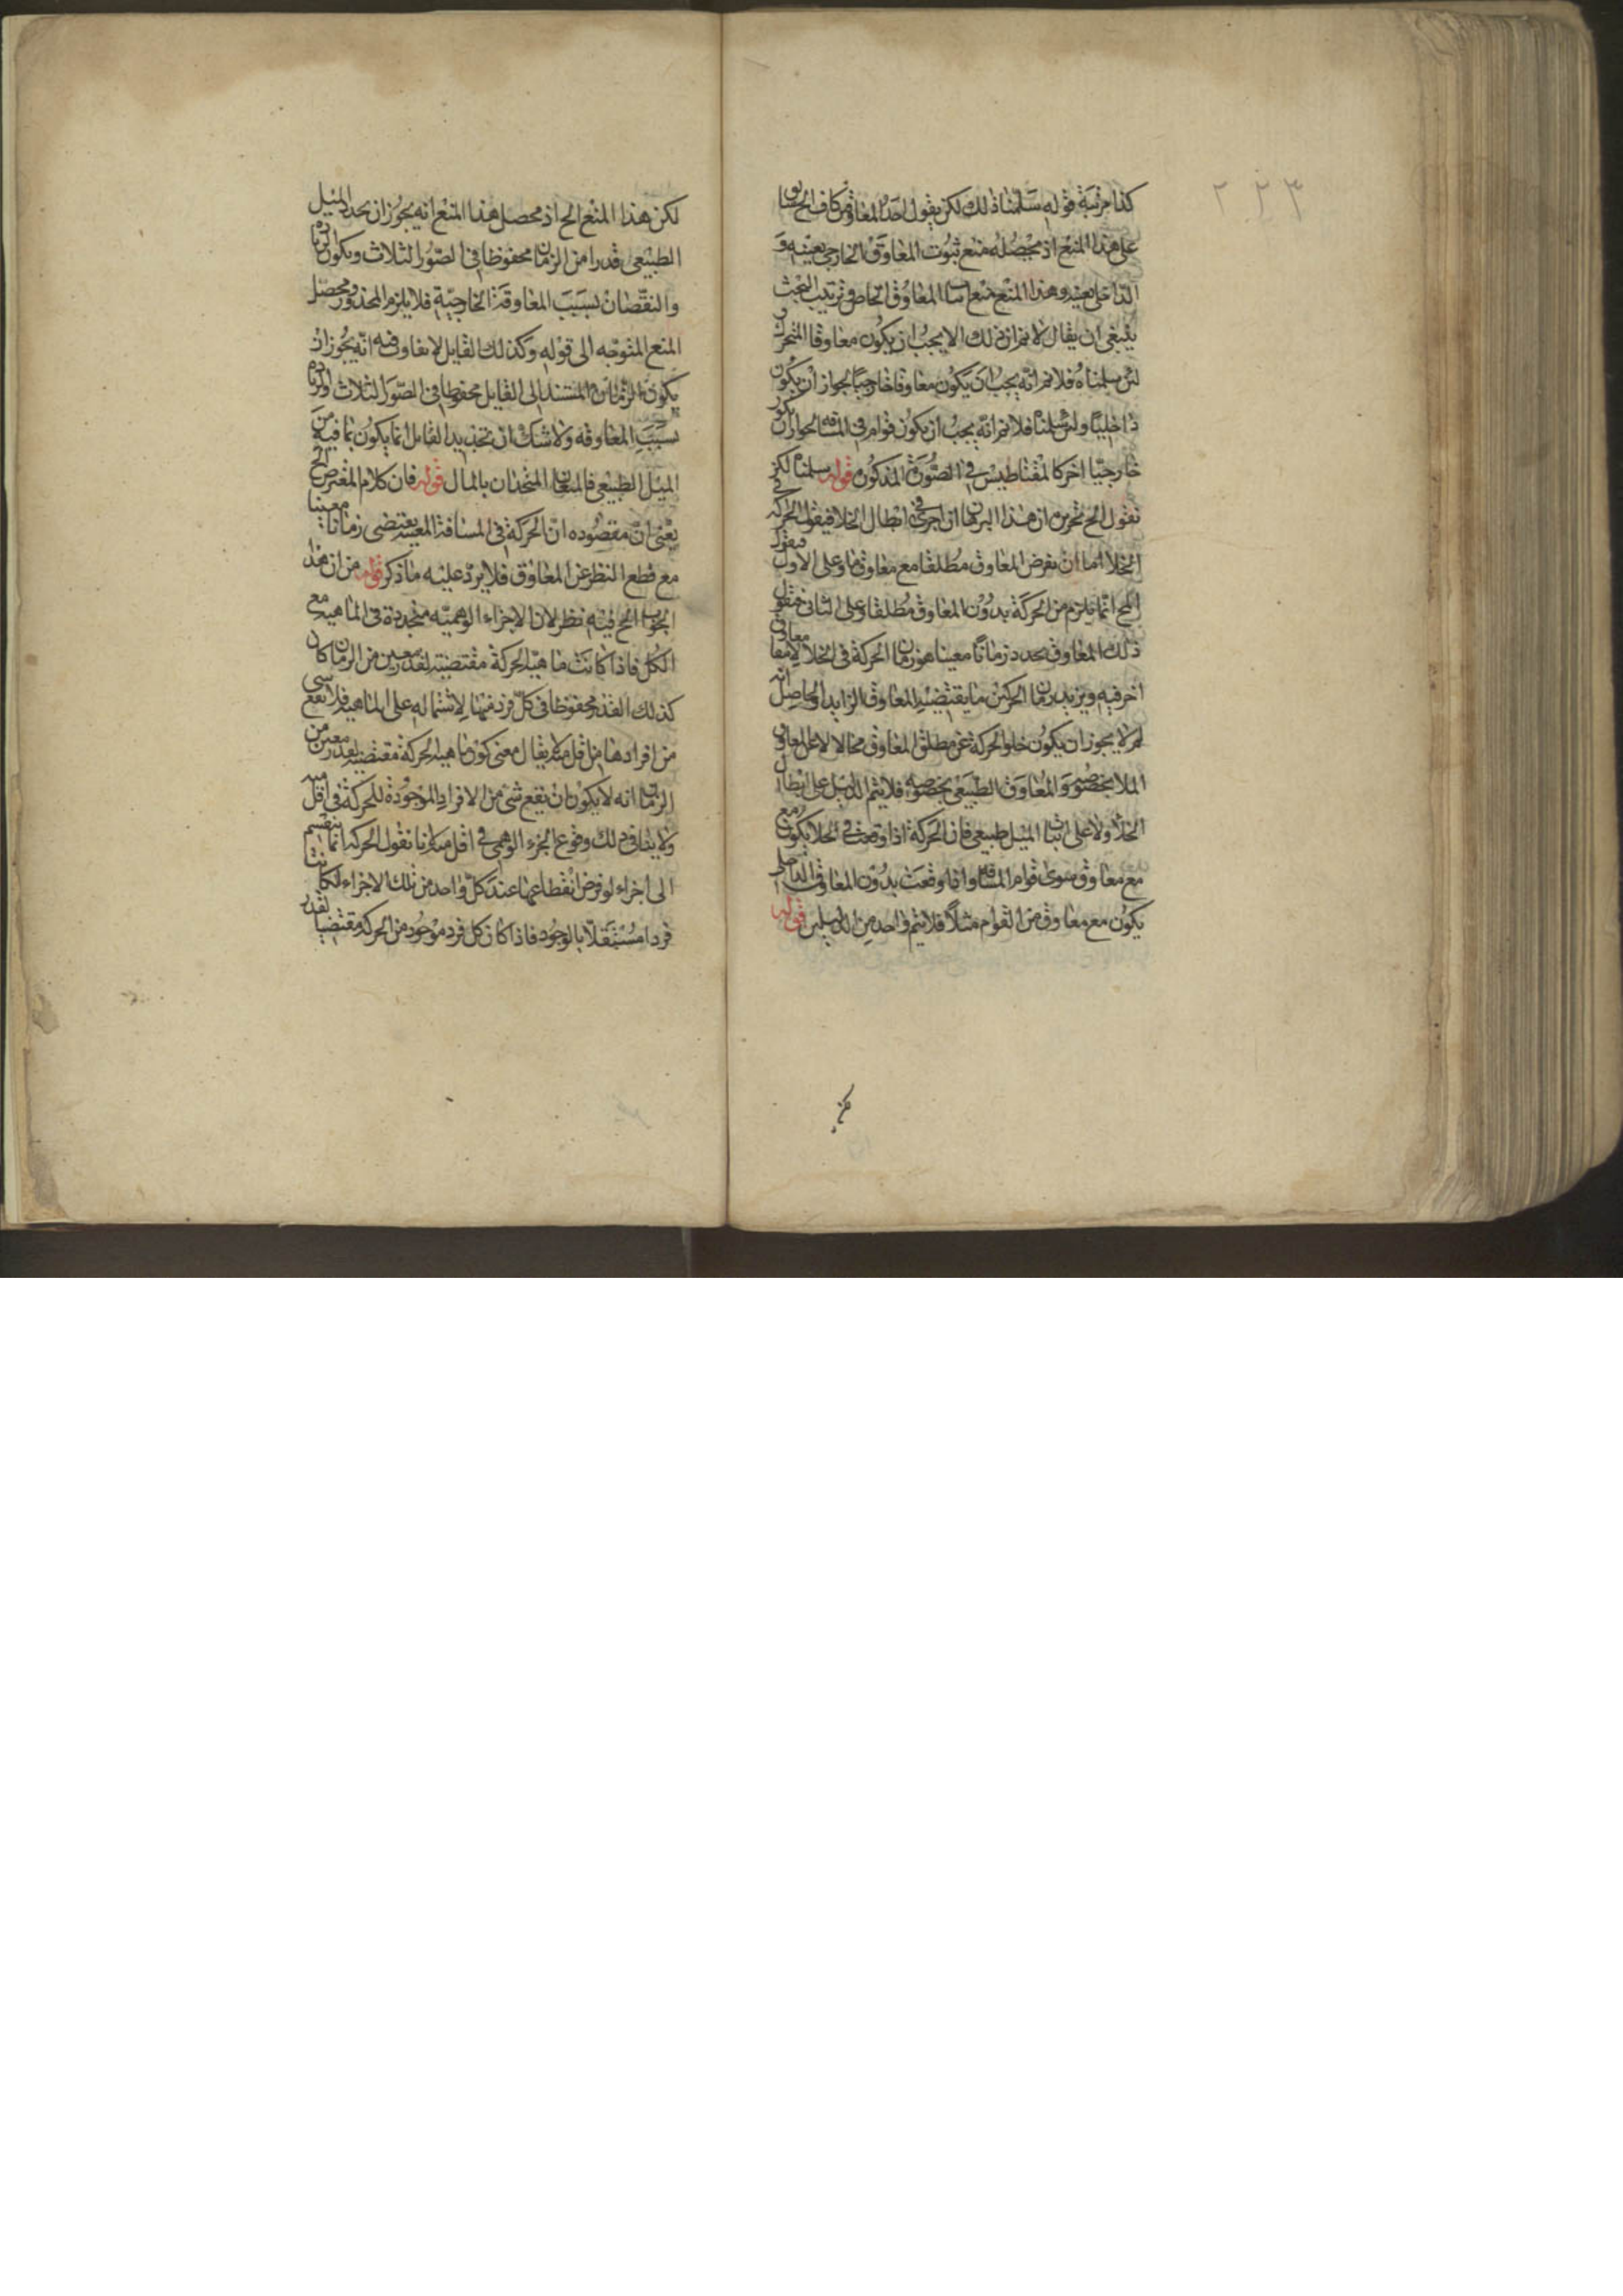 ٢٢٣
كذا مرتبة قوله سلمنا ذلك لكن يقول احد المعاوقين كاف الخ
على هذا المنع اذ محصوله منع ثبوت المعاوق الخارجى بعينه و
الداخلى بعينه وهذا المنع منع المعاوق الخاص فى ترتيب البحث
ينبغى ان يقال لا نم ان ذلك الا يجب ان يكون معاوقا المتحرك
لئن سلمناه فلا نم انه يجب ان يكون معاوقا خارجيا لجواز ان يكون
داخليا ولئن سلمنا فلا نم انه يجب ان يكون قوام فى المسافة لجواز ان يكون
خارجيا اخر كالمقناطيس فى الصورة المذكورة قوله سلمنا لكن
نقول الخ تحريره ان هذا البرهان ان اجرى فى ابطال الخلا فيقول الحركة فى
الخلا اما ان نفرض المعاوق مطلقا مع معاوق ما وعلى الاول فيقول
المح انما يلزم من الحركة بدون المعاوق مطلقا وعلى الثانى فيقول
ذلك المعاوق يحدد زمانا معينا هو زمان الحركة فى الخلا لا معاوق
اخر فيه ويزيد زمان الحركتين ما يقتضيه المعاوق الزايد والحاصل انه
لم لا يجوز ان يكون خلو الحركة عن مطلق المعاوق محالا لا عن المعاوق
الملا بخصوصه والمعاوق الطبيعى بخصوصه فلا يتم الدليل على ابطال
الخلا ولا على اثبات الميل طبيعى فان الحركة اذا وقعت فى الخلا يكون مع
مع معاوق سوى قوام المسافة واذا وقعت بدون المعاوق الداخلى
يكون مع معاوق من القوام مثلا فلا يتم واحد من الدليلين قوله
لكن
لكن هذا المنع الخ اذ محصل هذا المنع انه يجوز ان يحدد الميل
الطبيعى قدرا من الزمان محفوظا فى الصور الثلاث ويكون الزيادة
والنقصان بسبب المعاوقة الخارجية فلا يلزم المحذور ومحصل
المنع المتوجه الى قوله وكذلك القايل لا معاوق فيه انه يجوز ان
يكون الزمان المستند الى القايل محفوظا فى الصور الثلاث والزيادة
بسبب المعاوقة ولا شك ان تحديد القابل انما يكون بما فيه من
الميل الطبيعى فالمنعان المتحدان بالمال قوله فان كلام المعترض الخ
يعنى ان مقصوده ان الحركة فى المسافة المعينة يقتضى زمانا معينا
مع قطع النظر عن المعاوق فلا يرد عليه ما ذكر قوله من ان هذا
الجواب الخ فيه نظر لان الاجزاء الوهمية متحددة فى الماهية مع
الكل فاذا كانت ماهية الحركة مقتضية لقدر معين من الزمان كان
كذلك القدر محفوظا فى كل فرد منها لاشتماله على الماهية فلا يقع شى
من افرادها من اقل منه لا يقال معنى كون ماهية الحركة مقتضية لقدر معين من
الزمان انه لا يكون ان يقع شى من الافراد الموجودة للحركة فى اقل منه
ولا ينافى ذلك وقوع الجزء الوهمى فى اقل منه لانا نقول الحركة انما ينقسم
الى اجزاء لو فرض انقطاعها عند كل واحد من تلك الاجزاء لكانت
فردا مستقلا بالوجود فاذا كان كل فرد موجود من الحركة مقتضيا لقدر